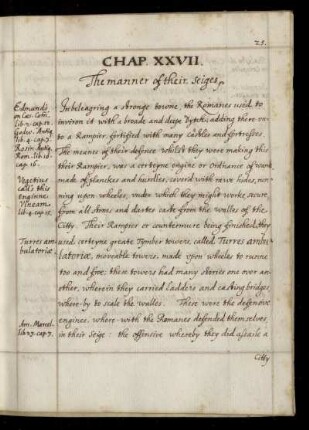 21.
CHAP. XXVII.
The manner of their Seiges.
Edmunds
on Cæs. Com.
lib. 2. cap. 12.
lib. 4. cap. 3.
Rosin Antiq.
Rom. lib. 10.
cap. 16.
Vegetius
calls this
engine
Vineam.
lib. 4. cap. 15.
Turres am=
bulatoriæ.
Am. Marcel.
lib. 23. cap. 7.
In beleagring a stronge towne, the Romanes used to
inviron it with a broade and deepe Dytch, adding there un=
to a Rampier, fortified with many castles and fortresses
The meanes of their defence whilst they were making this
their Rampier, was a certeyne engine or Ordinance of warr
made of planckes and hurdles, covered with rawe hides, run=
ning upon wheeles, under which they might worke secure
from all stones and dartes caste from the walles of the
Citty. Their Rampier or countermure being finished, they
used certeyne greate Tymber towers, called Turres ambu=
latoriæ, moveable towers, made upon wheeles to runne
too and froe: these towers had many stories one over an=
other, wherein they carried Ladders and casting bridges
where by to scale the walles. These were the defensive
engines, where with the Romanes defended themselves
in their Seige: the offensive whereby they did assaile a
Citty